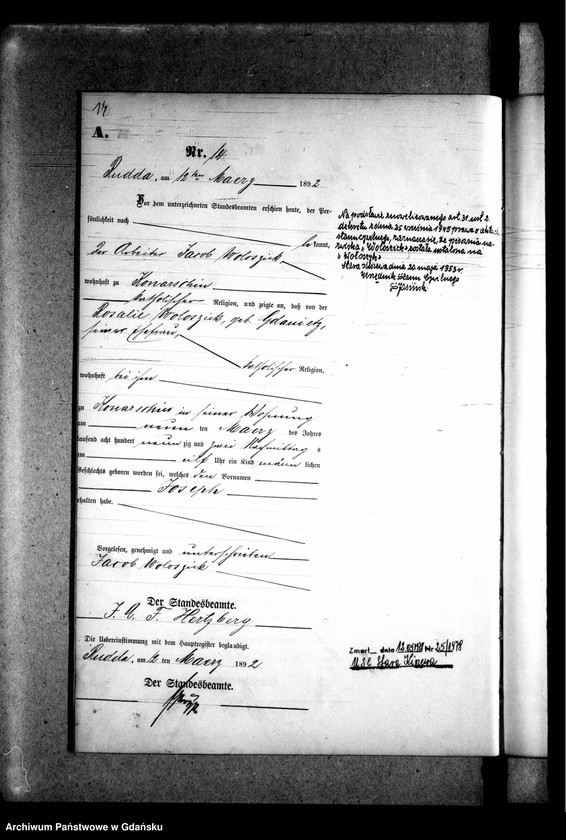 14
A.
Nr. 14.
Rudda, am 12ten Maerz 1892
Vor dem unterzeichneten Standesbeamten erschien heute, der Per-
sönlichkeit nach
be kannt,
Der Arbeiter Jacob Woloszick
wohnhaft zu Konarschin
katholischer Religion, und zeigte an, daß von der
Rosalie Woloszick, geb. Gdanietz,
seiner Ehefrau,
katholischer Religion,
wohnhaft bei ihm
zu Konarschin in seiner Wohnung
am neun ten Maerz des Jahres
tausend acht hundert neun zig und zwei Nachmittag s
um eilf Uhr ein Kind männ lichen
Geschlechts geboren worden sei, welches den Vornamen
Joseph
erhalten habe.
Vorgelesen, genehmigt und unterschrieben
Jacob Woloszick
Der Standesbeamte.
J. A. F. Hertzberg
Die Uebereinstimmung mit dem Hauptregister beglaubigt.
Rudda, am 12. ten Maerz 1892
Der Standesbeamte.
Na podstawie art. 31 ust. 2
dekretu z dnia 25 września 1945 prawo o aktach
stanu cywilnego, zaznaczam, że pisownia na-
zwiska „Woloszick” została ustalona na
„Wołoszyk”
Stara Kiszewa dnia 20 maja 1953 r.
Urzędnik Stanu Cywilnego
Zmarł dnia 12.05.1978 Nr 25/1978
USC Stara Kiszewa
Archiwum Państwowe w Gdańsku